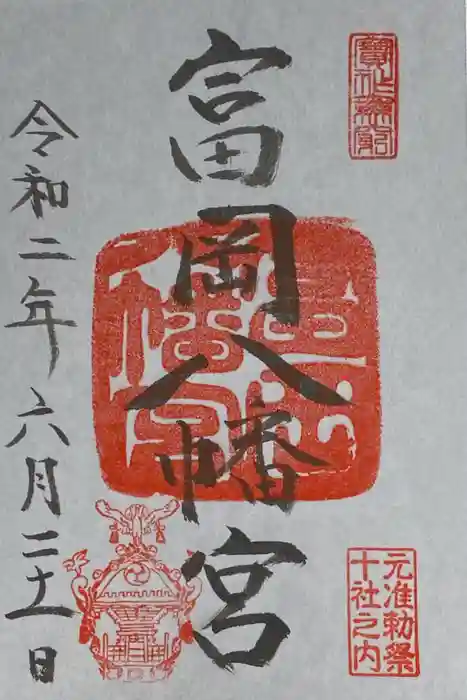 寳祚無窮
富岡八幡宮
元准勅祭
十社之内
令和二年六月二十一日